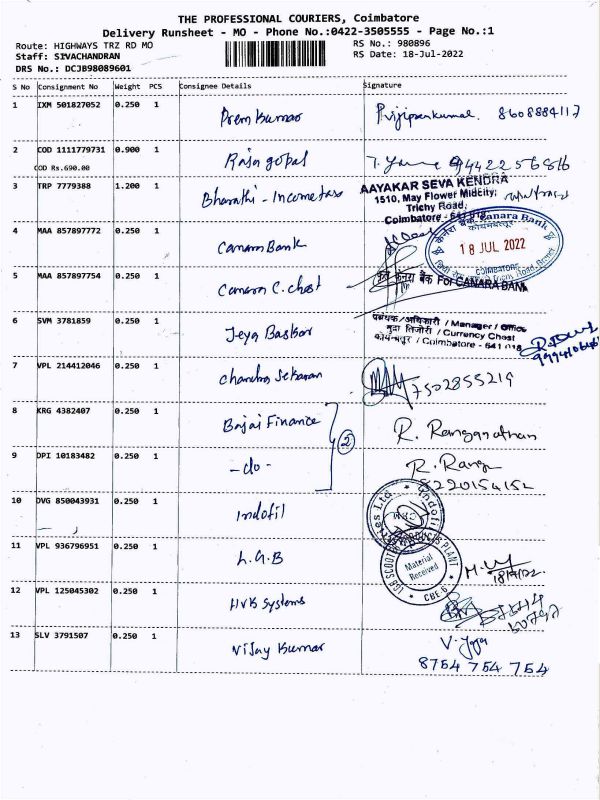 THE PROFESSIONAL COURIERS, Coimbatore
Delivery Runsheet - MO - Phone No.:0422-3505555 - Page No.:1
Route: HIGHWAYS TRZ RD MO RS No.: 980896
Staff: SIVACHANDRAN RS Date: 18-Jul-2022
DRS No.: DCJB98089601
S No Consignment No Weight PCS Consignee Details Signature
1 IXM 501827052 0.250 1 Prem kumar 8608884117
2 COD 1111779731 0.900 1 Rajagopal 9442256816
COD Rs.690.00
3 TRP 7779388 1.200 1 Bharathi - Income tax
AAYAKAR SEVA KENDRA
1510, May Flower Midcity,
Trichy Road,
Coimbatore - 641 018
4 MAA 857897772 0.250 1 Canara Bank
Canara Bank
18 JUL 2022
COIMBATORE
5 MAA 857897754 0.250 1 Canara C. chest
कृते केनरा बैंक For CANARA BANK
6 SVM 3781859 0.250 1 Jeya Baskar
प्रबंधक/अधिकारी / Manager / Officer
मुद्रा तिजोरी / Currency Chest
कोयम्बत्तूर / Coimbatore - 641 018
7 VPL 214412046 0.250 1 Chandra Sekaran 7502855219
8 KRG 4382407 0.250 1 Bajaj Finance R. Ranganathan
2
9 DPI 10183482 0.250 1 -do- R. Ranga
8220154152
10 DVG 850043931 0.250 1 Indofil
11 VPL 936796951 0.250 1 L.G.B
Material
Received
CBE-6
18/7/22
12 VPL 125045302 0.250 1 HVK Systems
13 SLV 3791507 0.250 1 Vijay Kumar
8754 754 754